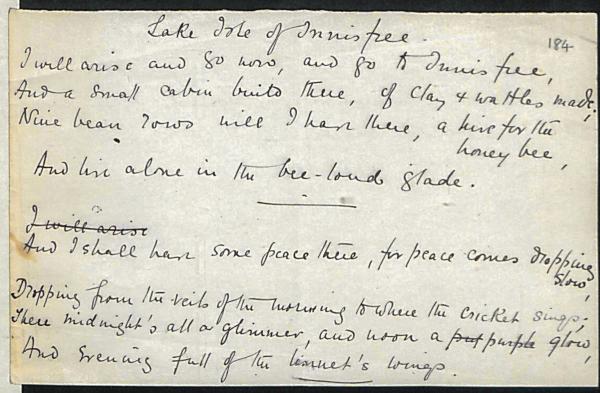 Lake Isle of Innisfree.
184
I will arise and go now, and go to Innisfree,
And a small cabin build there, of clay & wattles made;
Nine bean rows will I have there, a hive for the
honey bee,
And live alone in the bee-loud glade.
I will arise
And I shall have some peace there, for peace comes dropping
slow,
Dropping from the veils of the morning to where the cricket sings;
There midnight's all a glimmer, and noon a purple glow,
And evening full of the linnet's wings.